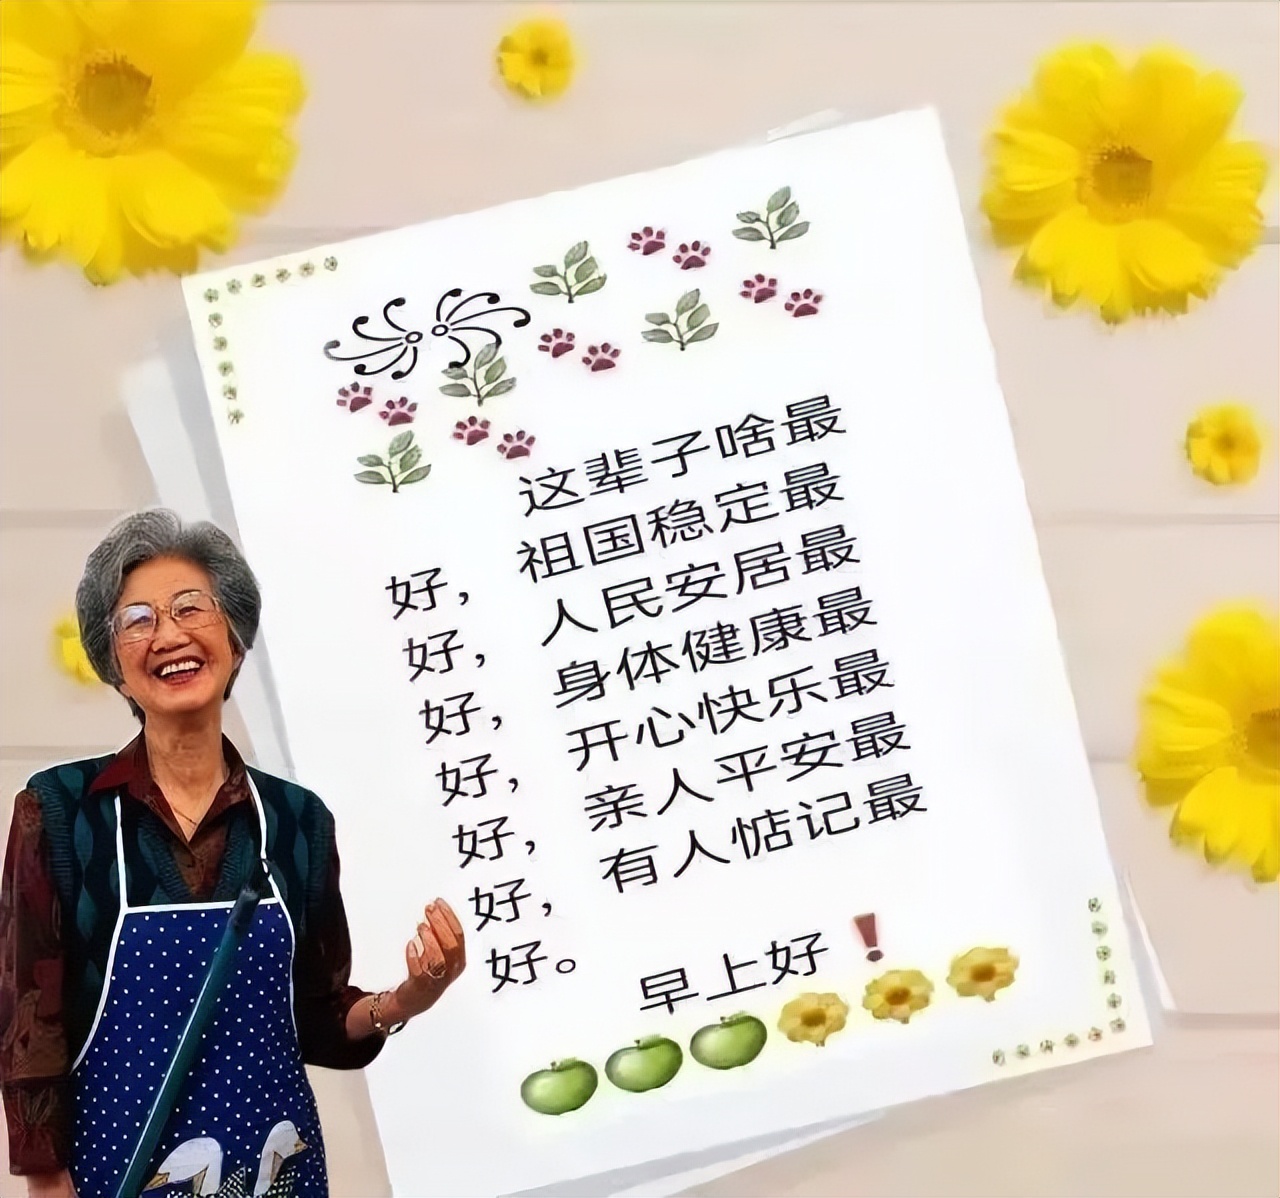 这辈子啥最
好，祖国稳定最
好，人民安居最
好，身体健康最
好，开心快乐最
好，亲人平安最
好，有人惦记最
好。
早上好❗